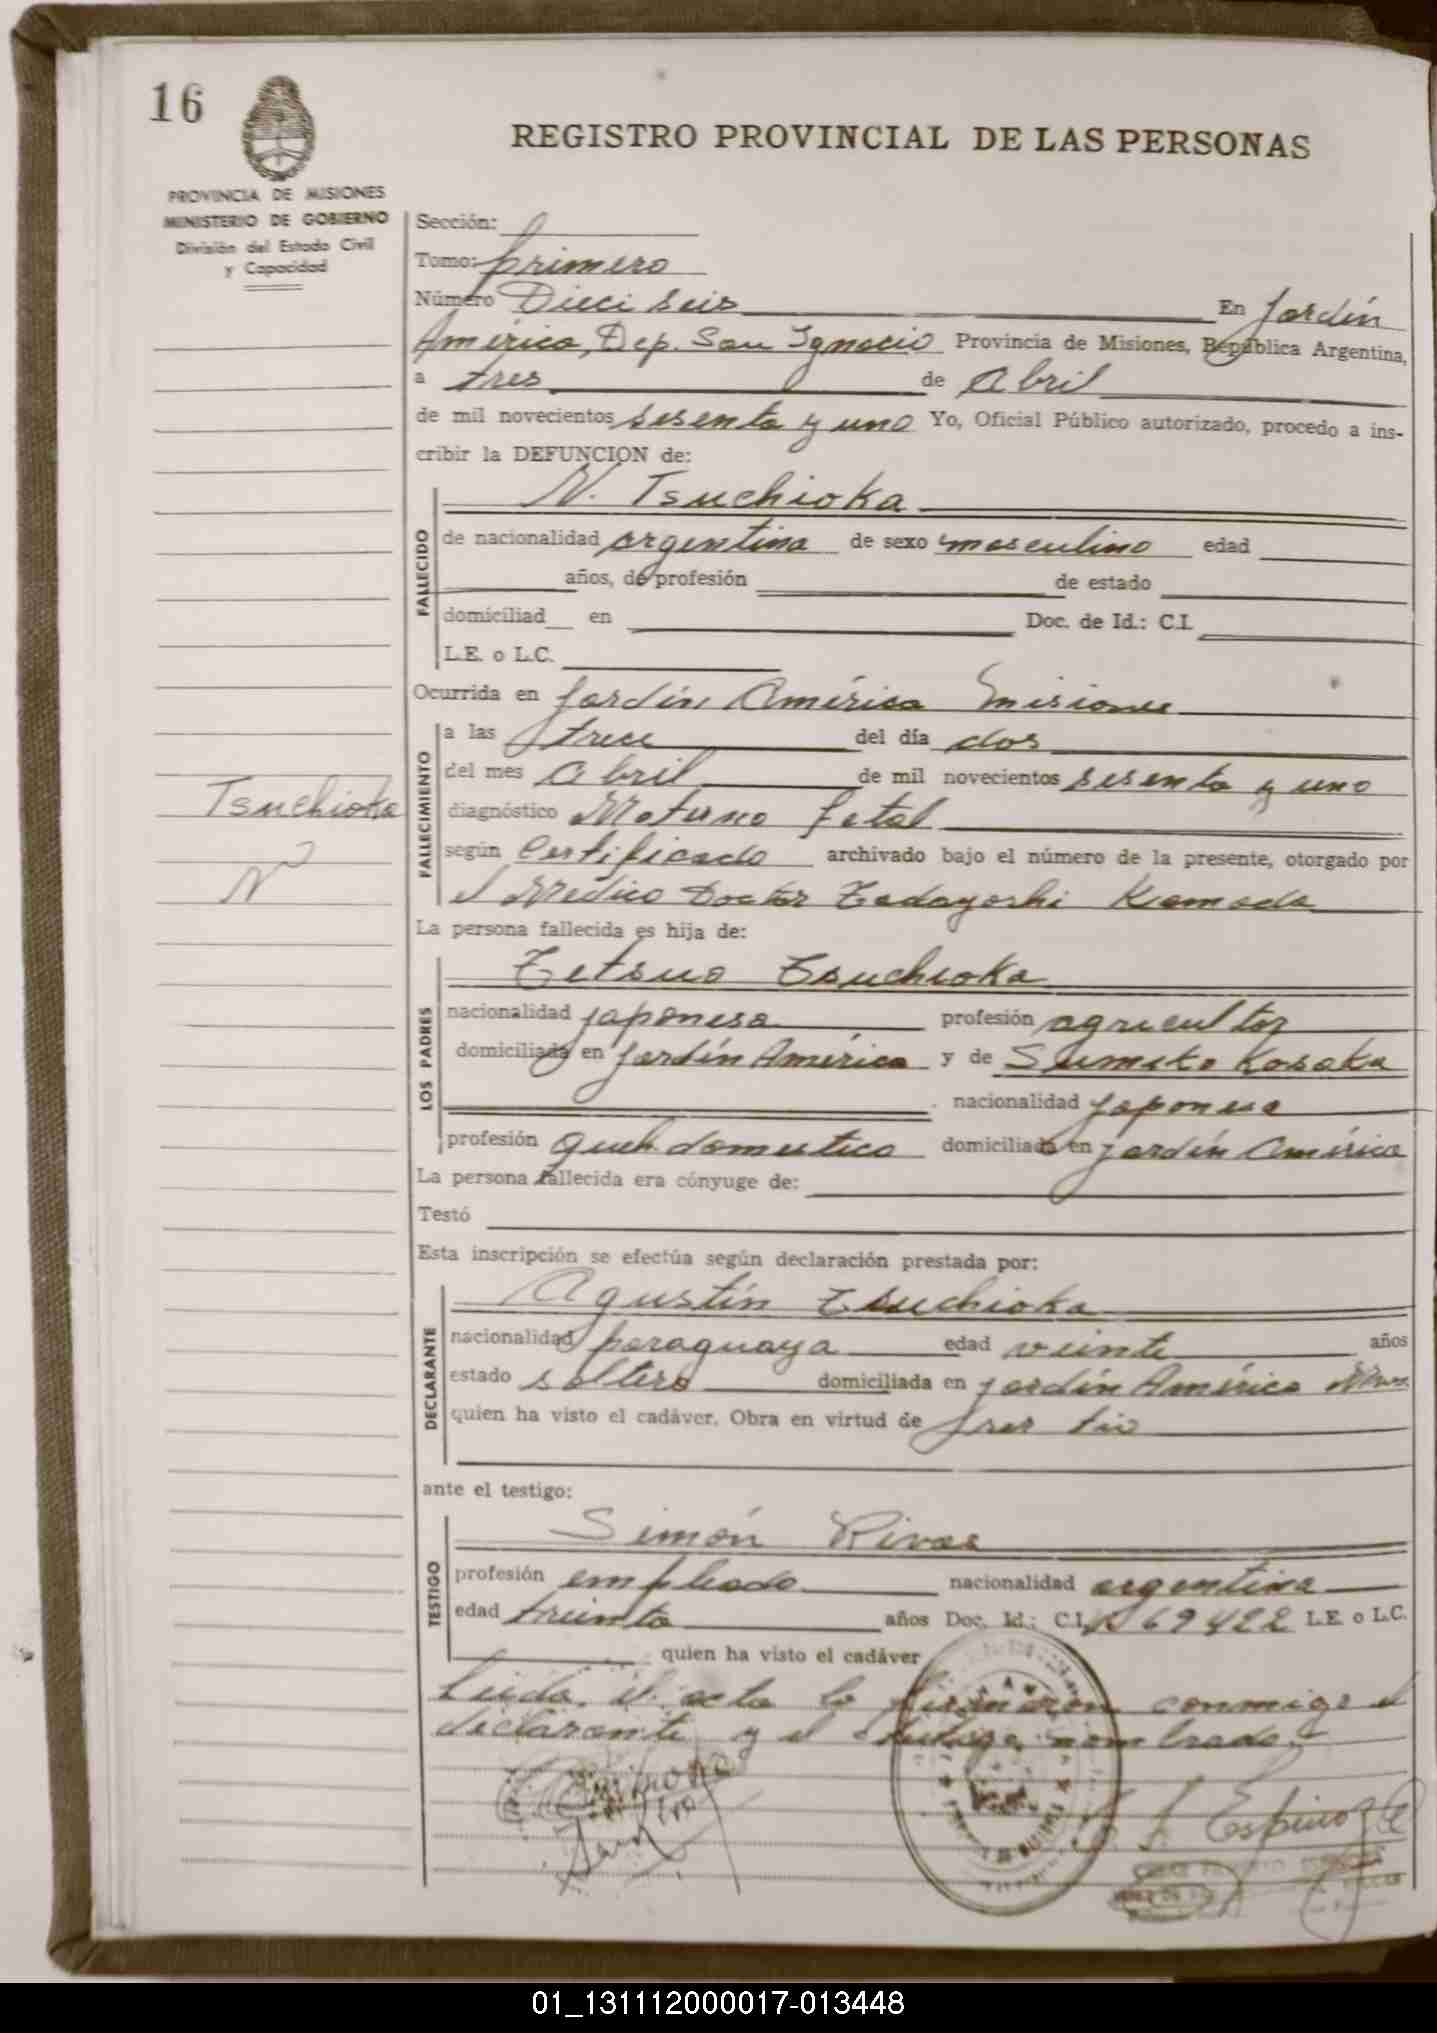 16
REGISTRO PROVINCIAL DE LAS PERSONAS
PROVINCIA DE MISIONES
MINISTERIO DE GOBIERNO
División del Estado Civil
y Capacidad
Sección:
Tomo: primero
Número Dieci seis En Jardín
América, Dep. San Ignacio Provincia de Misiones, República Argentina,
a tres de Abril
de mil novecientos sesenta y uno Yo, Oficial Público autorizado, procedo a ins-
cribir la DEFUNCION de:
N. Tsuchioka
FALLECIDO
de nacionalidad argentina de sexo masculino edad
años, de profesión de estado
domiciliad en Doc. de Id.: C.I.
L.E. o L.C.
Ocurrida en Jardín América Misiones
FALLECIMIENTO
a las trece del día dos
del mes Abril de mil novecientos sesenta y uno
Tsuchioka
N
diagnóstico Moturno fetal
según Certificado archivado bajo el número de la presente, otorgado por
el Médico Doctor Tadayoshi Kamada
La persona fallecida es hija de:
LOS PADRES
Tetsuo Tsuchioka
nacionalidad japonesa profesión agricultor
domiciliada en Jardín América y de Sumiko Kosaka
nacionalidad japonesa
profesión queh. domestico domiciliada en jardín América
La persona fallecida era cónyuge de:
Testó
Esta inscripción se efectúa según declaración prestada por:
DECLARANTE
Agustín Tsuchioka
nacionalidad paraguaya edad veinte años
estado soltero domiciliada en jardín América Mnes.
quien ha visto el cadáver. Obra en virtud de ser tio
ante el testigo:
TESTIGO
Simón Rivas
profesión empleado nacionalidad argentina
edad treinta años Doc. Id.: C.I. 69422 L.E. o L.C.
quien ha visto el cadáver
Leida el acta la firmaron conmigo el
declarante y el testigo nombrado.
Espinoza
01_131112000017-013448